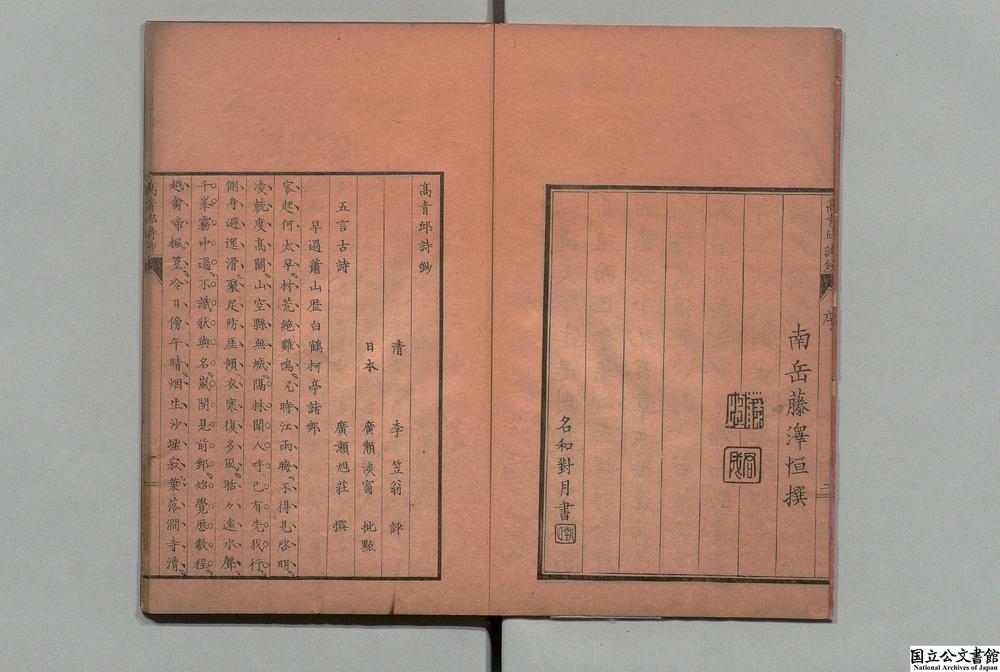 高青邱詩鈔
序
二
南岳藤澤恒撰
名和對月書
高青邱詩鈔
清 李笠翁 評
日本 廣瀨淡窗 批點
五言古詩 廣瀨旭莊 撰
早過蕭山歷白鶴柯亭諸郵
客起何太早村荒絕雞鳴况時江雨晦不得見啓明
凌兢度高關山空縣無城隔林聞人呼已有先我行
側身避逕滑聚足防崖傾衣寒復多風昏々遠水聲
千峯霧中過不識狀與名嵐開見前郵始覺歷數程
越禽啼楓篁冷日傍午晴烟生沙墟寂葉落澗寺清
国立公文書館
National Archives of Japan